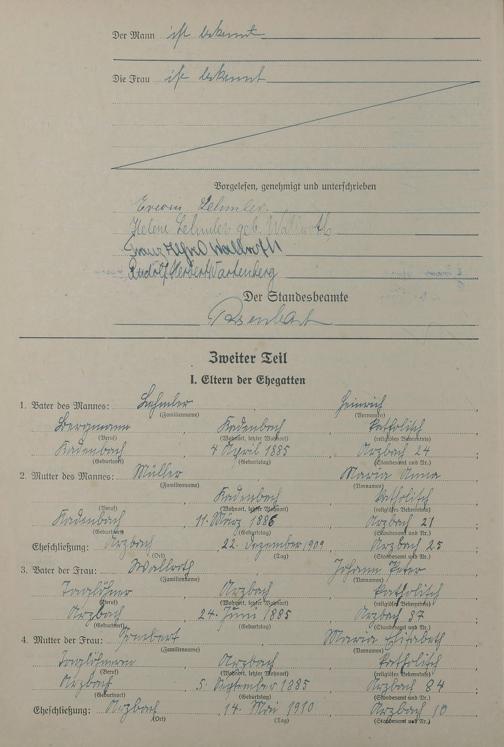 Der Mann ist bekannt
Die Frau ist bekannt
Vorgelesen, genehmigt und unterschrieben
Lehmler
Helene Lehmler geb. Wallroth
Franz Wallroth
Rudolf Herbert Wartenberg
Der Standesbeamte
Zweiter Teil
I. Eltern der Ehegatten
1. Vater des Mannes: Lehmler, Heinrich
(Familienname) (Vornamen)
Bergmann, Kadenbach, katholisch
(Beruf) (Wohnort, letzter Wohnort) (religiöses Bekenntnis)
Kadenbach, 4 April 1885, Arzbach 24;
(Geburtsort) (Geburtstag) (Standesamt und Nr.)
2. Mutter des Mannes: Müller, Maria Anna
(Familienname) (Vornamen)
Kadenbach, katholisch
(Beruf) (Wohnort, letzter Wohnort) (religiöses Bekenntnis)
Kadenbach, 11. März 1886, Arzbach 21;
(Geburtsort) (Geburtstag) (Standesamt und Nr.)
Eheschließung: Arzbach, 22. Dezember 1909, Arzbach 25
(Ort) (Tag) (Standesamt und Nr.)
3. Vater der Frau: Wallroth, Johann Peter
(Familienname) (Vornamen)
Taglöhner, Arzbach, katholisch
(Beruf) (Wohnort, letzter Wohnort) (religiöses Bekenntnis)
Arzbach, 24. Juni 1885, Arzbach 37;
(Geburtsort) (Geburtstag) (Standesamt und Nr.)
4. Mutter der Frau: Maria Elisabeth
(Familienname) (Vornamen)
Arzbach, katholisch
(Beruf) (Wohnort, letzter Wohnort) (religiöses Bekenntnis)
Arzbach, 5. September 1885, Arzbach 84;
(Geburtsort) (Geburtstag) (Standesamt und Nr.)
Eheschließung: Arzbach, 14. Mai 1910, Arzbach 10
(Ort) (Tag) (Standesamt und Nr.)